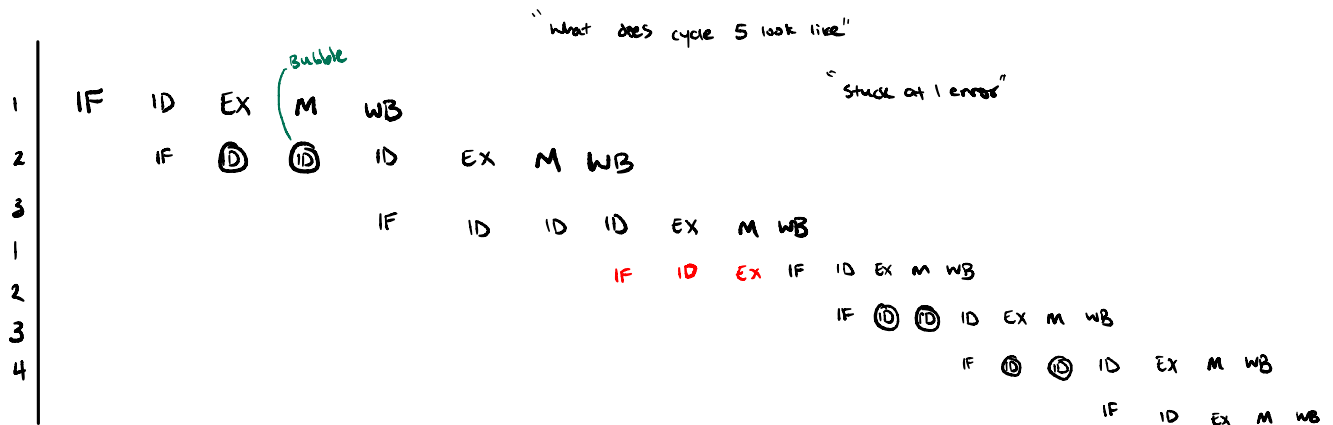 "What does cycle 5 look like"
Bubble
"stuck at 1 error"
1 IF ID EX M WB
2 IF ID ID ID EX M WB
3 IF ID ID ID EX M WB
1 IF ID EX IF ID EX M WB
2 IF ID ID ID EX M WB
3 IF ID ID ID EX M WB
4 IF ID EX M WB